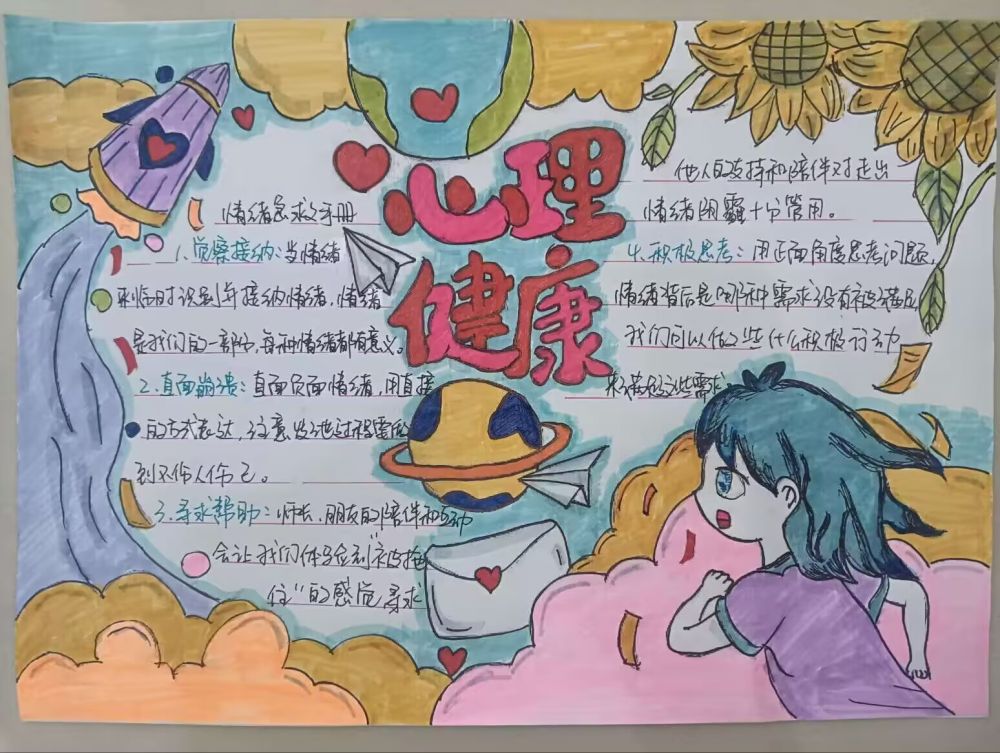 心理
健康
情绪急救手册
1.觉察接纳:当情绪
来临时识别并接纳情绪,情绪
是我们的一部份,每种情绪都有意义。
2.直面崩溃:直面负面情绪,用直接
的方式表达,注意发泄过程需做
到不伤人伤己。
3.寻求帮助:师长、朋友的陪伴和互动
会让我们体验到"被接
住"的感觉,寻求
他人的支持和陪伴对走出
情绪阴霾十分管用。
4.积极思考:用正面角度思考问题,
情绪背后是哪种需求没有被满足
我们可以做些什么积极行动
来满足这些需求